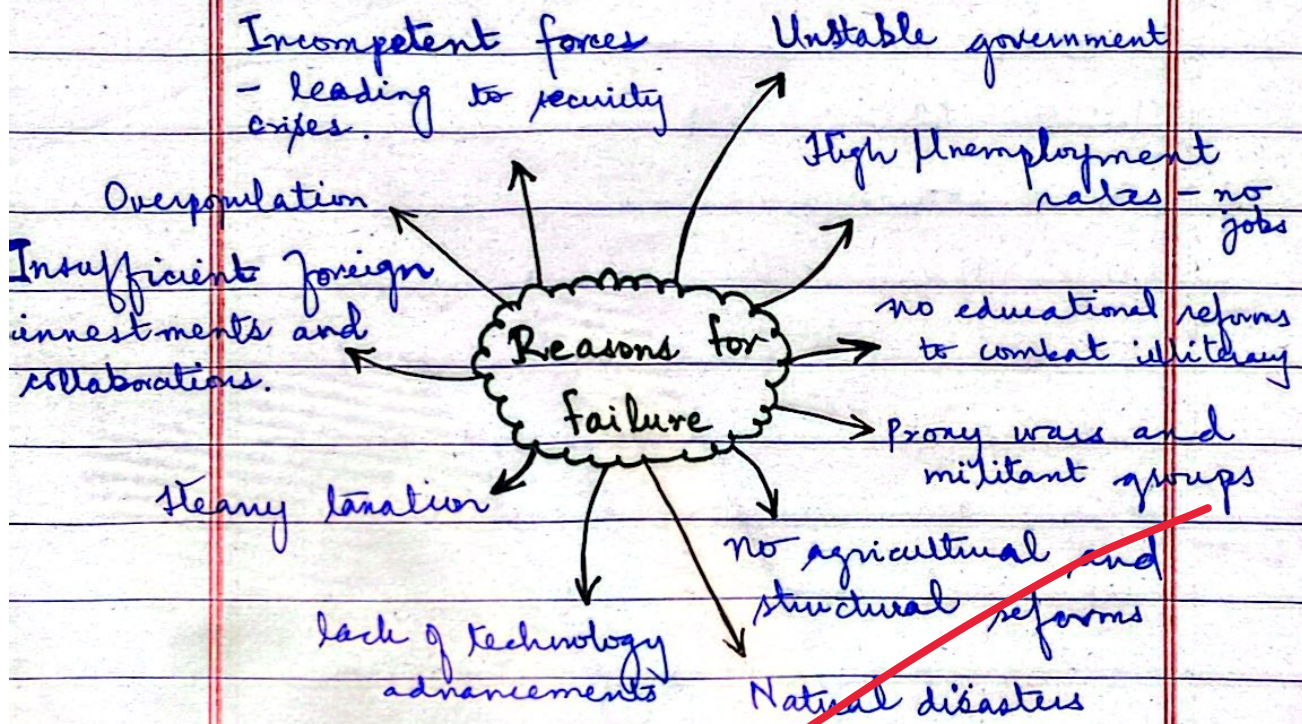 Incompetent forces
- leading to security
crises.
Unstable government
High Unemployment
rates - no
jobs
Overpopulation
Insufficient foreign
investments and
collaborations.
Reasons for
failure
no educational reforms
to combat illiteracy
Proxy wars and
militant groups
Heavy taxation
no agricultural and
structural reforms
lack of technology
advancements
Natural disasters